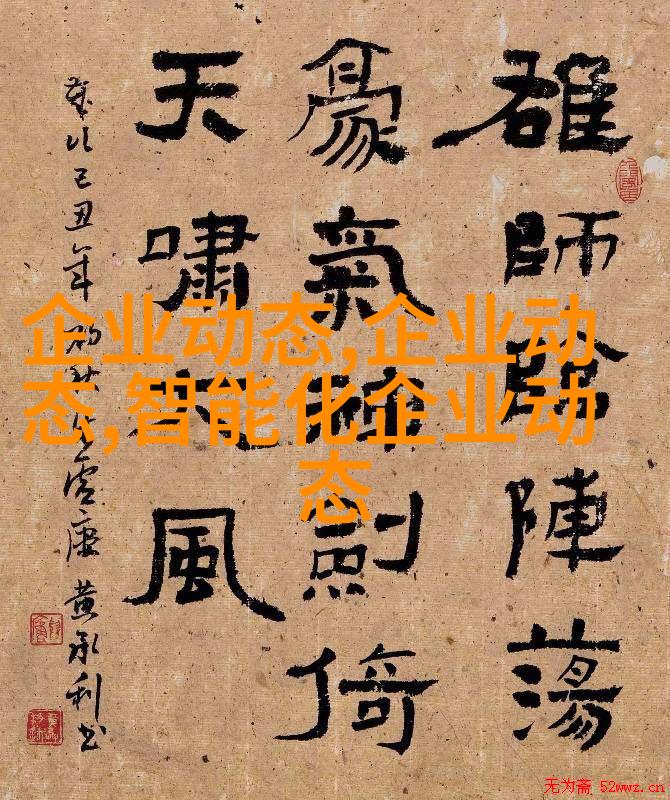 雄師臨陣蕩
豪氣劍倚
天嘯風
歲次己丑年初秋 黄承利书
企业动态,企业动
态,智能化企业动
态
无为斋 52wwz.cn